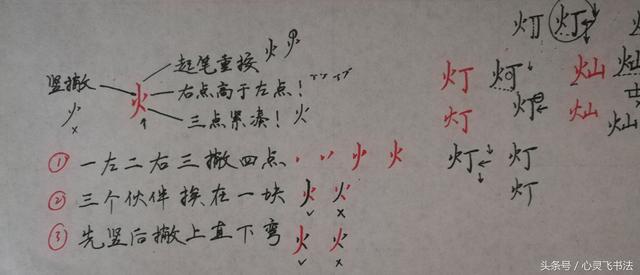 起笔重按
竖撇 火 右点高于左点！
三点紧凑！火
① 一左二右三撇四点 火 火
② 三个伙伴挨在一块 火 火
③ 先竖后撇上直下弯 火 火
灯 灯
灯 灿 灿
灯 灯 灿 灿
灯 灯
灯
头条号／心灵飞书法